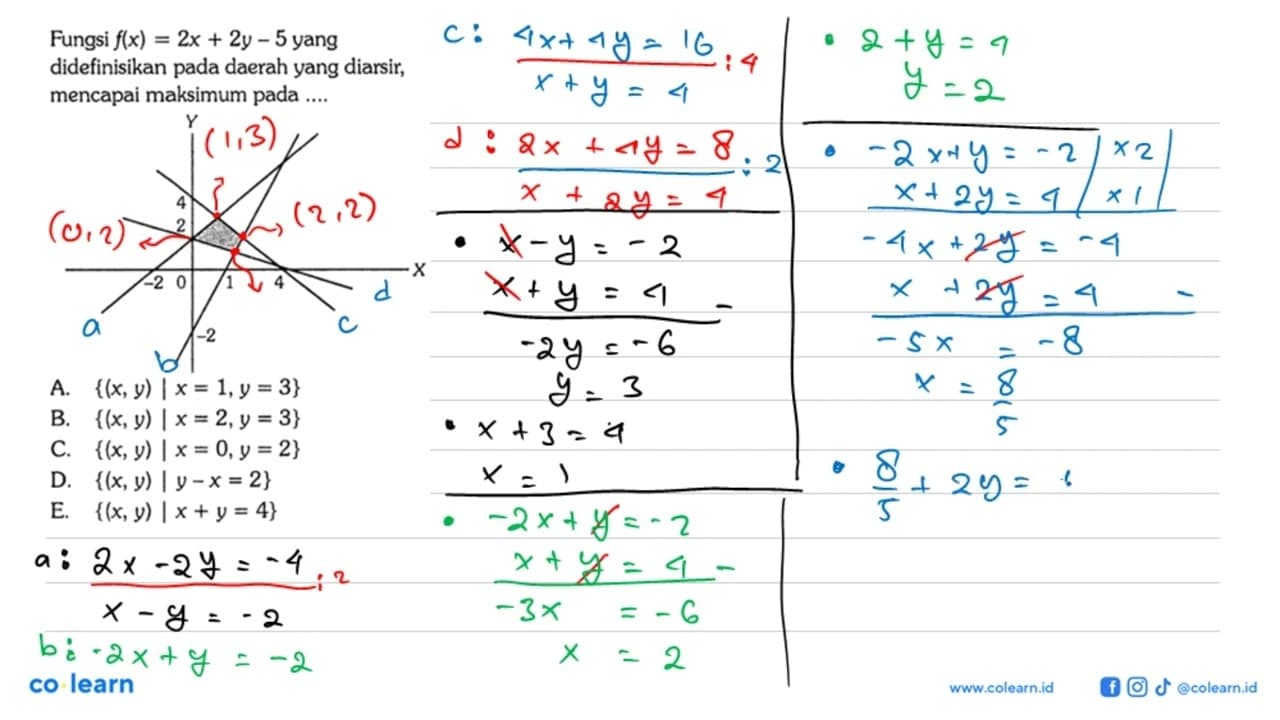 Fungsi f(x) = 2x + 2y – 5 yang
didefinisikan pada daerah yang diarsir,
mencapai maksimum pada ....
Y
(1,3)
4
2
(0,2)
(2,2)
X
-2 0 1 4
-2
a
b
c
d
A. {(x, y) | x = 1, y = 3}
B. {(x, y) | x = 2, y = 3}
C. {(x, y) | x = 0, y = 2}
D. {(x, y) | y – x = 2}
E. {(x, y) | x + y = 4}
a: 2x - 2y = -4 :2
x - y = -2
b: -2x + y = -2
c: 4x + 4y = 16 :4
x + y = 4
d: 2x + 4y = 8 :2
x + 2y = 4
• x - y = -2
x + y = 4 -
-2y = -6
y = 3
• x + 3 = 4
x = 1
• -2x + y = -2
x + y = 4 -
-3x = -6
x = 2
• 2 + y = 4
y = 2
• -2x + y = -2 | x2 |
x + 2y = 4 | x1 |
-4x + 2y = -4
x + 2y = 4 -
-5x = -8
x = 8/5
• 8/5 + 2y =
co learn
www.colearn.id
@colearn.id